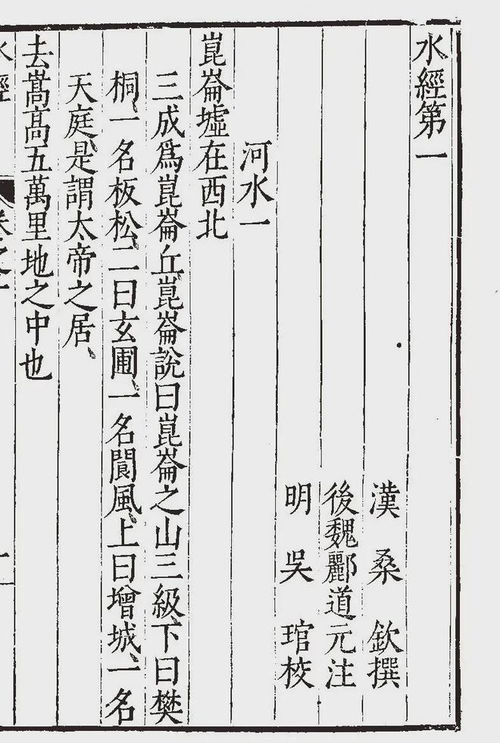 水經第一
漢 桑 欽撰
後魏酈道元注
明 吳 琯校
河水一
崑崙墟在西北
三成爲崑崙丘、崑崙說曰崑崙之山三級、下曰樊
桐、一名板松、二曰玄圃、一名閬風、上曰增城、一名
天庭、是謂太帝之居、
去嵩高五萬里地之中也
水經
卷之一
一